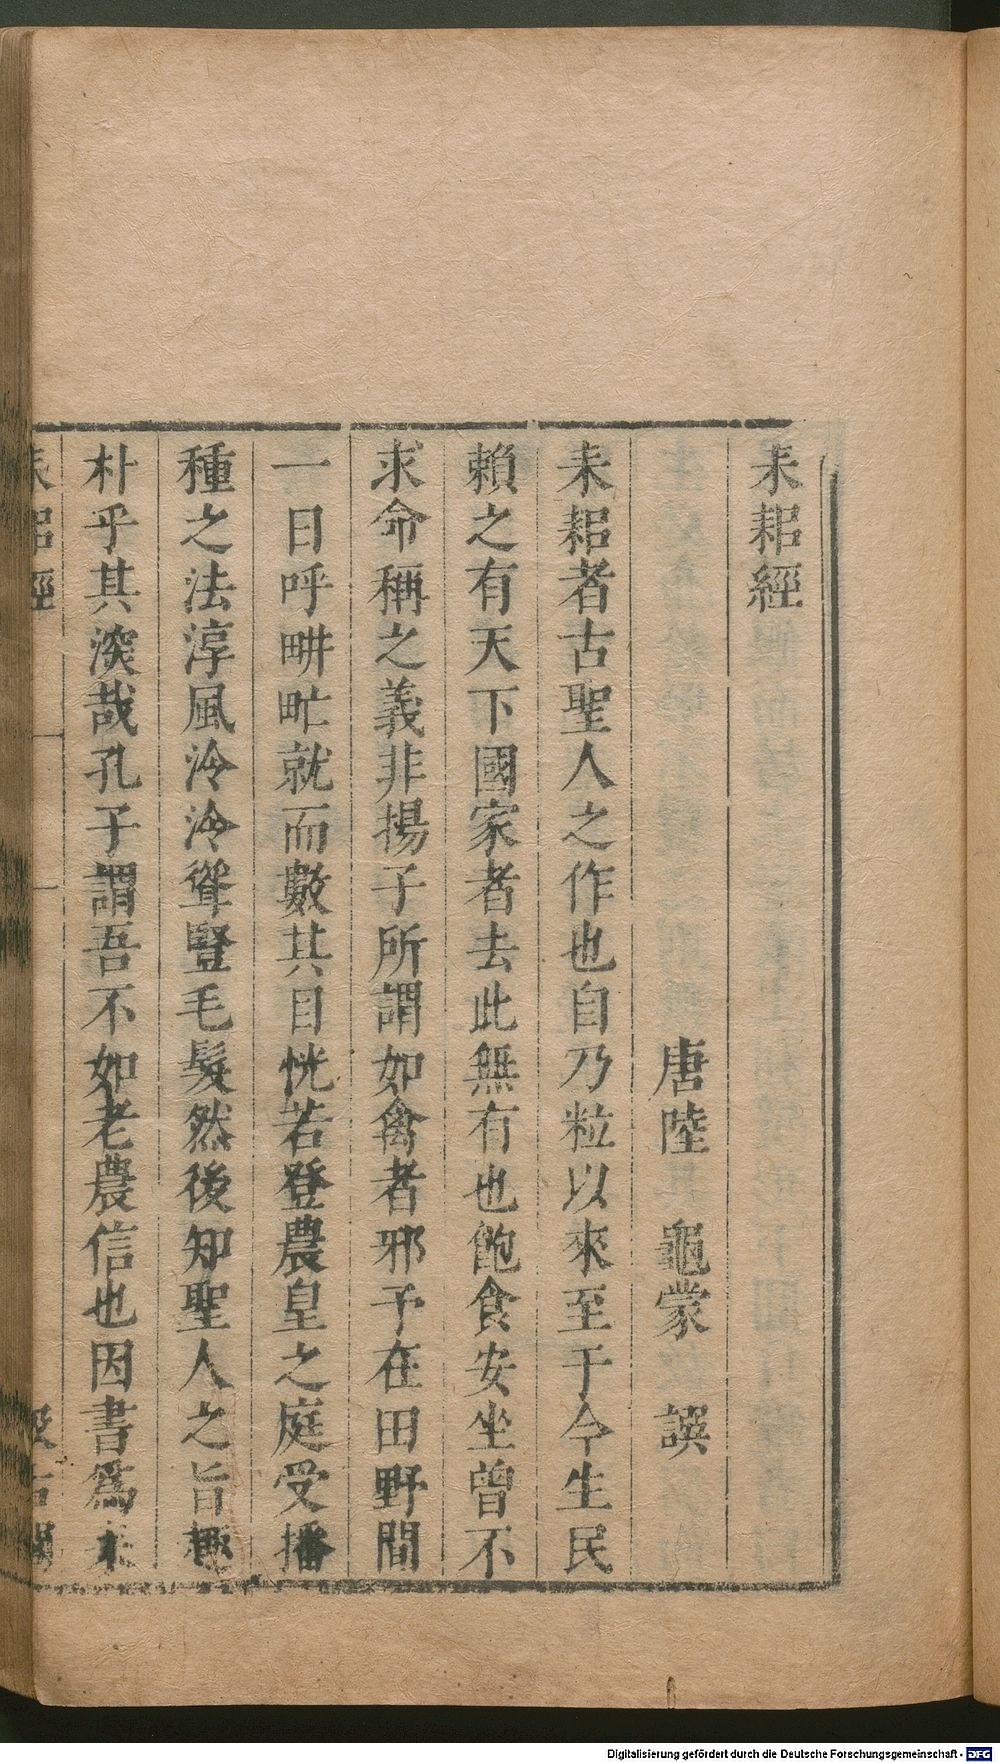 耒耜經
唐陸　龜蒙　譔
耒耜者古聖人之作也自乃粒以來至于今生民
賴之有天下國家者去此無有也飽食安坐曾不
求命稱之義非揚子所謂如禽者邪予在田野間
一日呼畊甿就而數其目恍若登農皇之庭受播
種之法淳風泠泠聳豎毛髮然後知聖人之旨趣
朴乎其深哉孔子謂吾不如老農信也因書爲耒
耒耜經
Digitalisierung gefördert durch die Deutsche Forschungsgemeinschaft - DFG